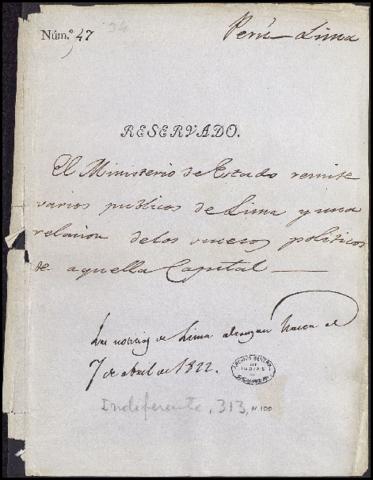 Núm.º 47
94
Perú - Lima
RESERVADO.
El Ministerio de Estado remite
varios publicos de Lima y una
relacion de los sucesos politicos
de aquella Capital
Las noticias de Lima alcanzan hasta el
7 de abril de 1822.
INDIAS
Indiferente, 313, N.100